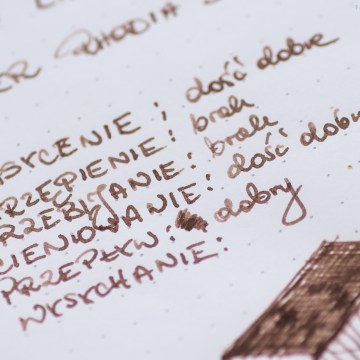 SYCENIE : dość dobre
RZĘPIENIE : brak
RZEBIJANIE : brak
CIENIOWANIE : dość dobr
PRZEPŁYW : dobry
WYSYCHANIE :